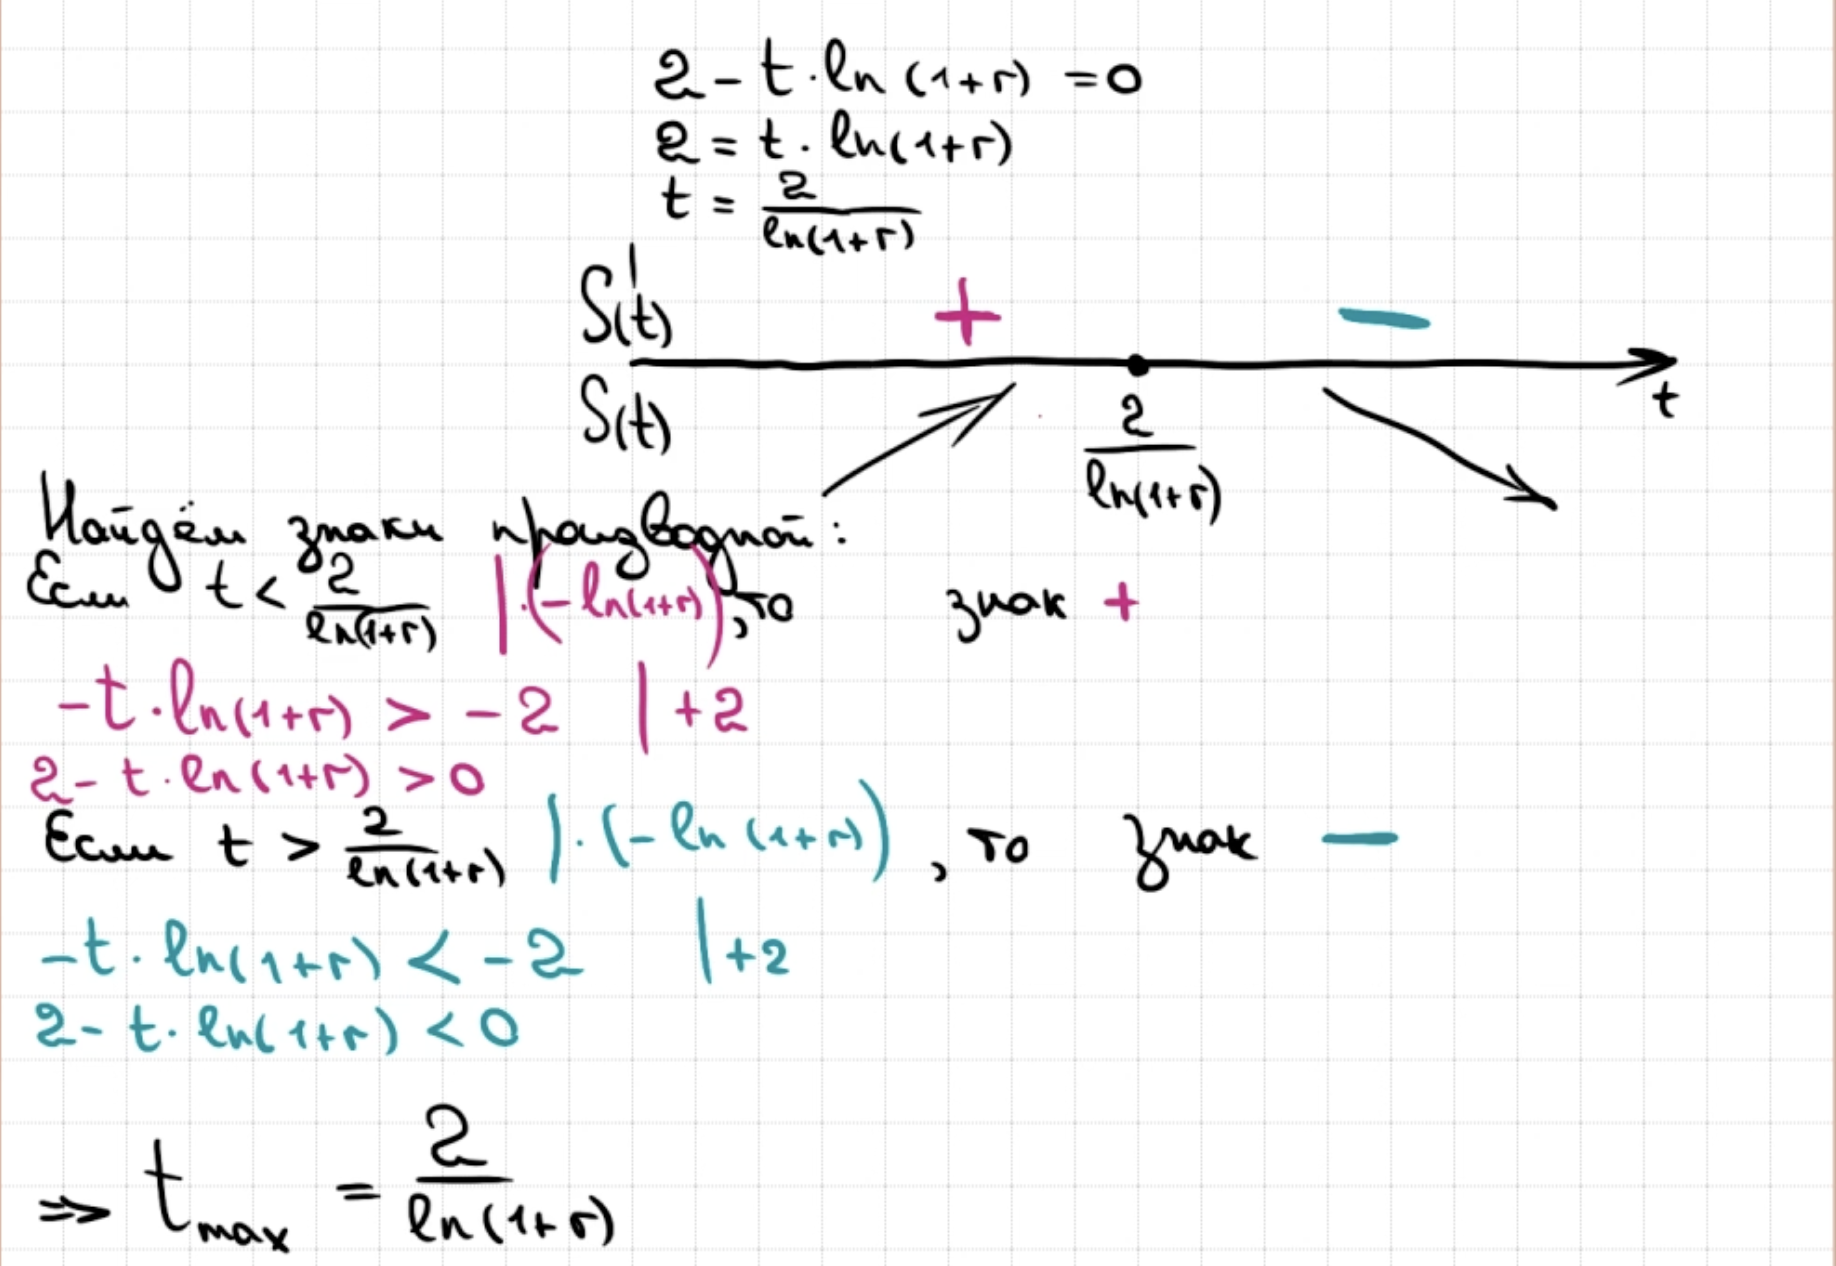 2 - t · ln (1+r) = 0
2 = t · ln(1+r)
t = 2/ln(1+r)
S'(t) + −
S(t) 2/ln(1+r) t
Найдём знаки производной:
Если t < 2/ln(1+r) | · (- ln(1+r)), то знак +
-t · ln(1+r) > -2 | +2
2 - t · ln(1+r) > 0
Если t > 2/ln(1+r) | · (- ln (1+r)), то знак −
-t · ln(1+r) < -2 | +2
2 - t · ln(1+r) < 0
⇒ t max = 2/ln(1+r)